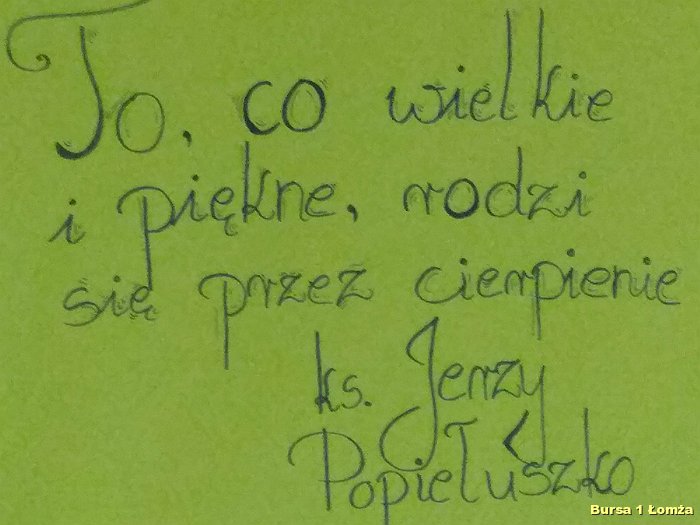 To, co wielkie
i piękne, rodzi
się przez cierpienie
ks. Jerzy
Popiełuszko
Bursa 1 Łomża